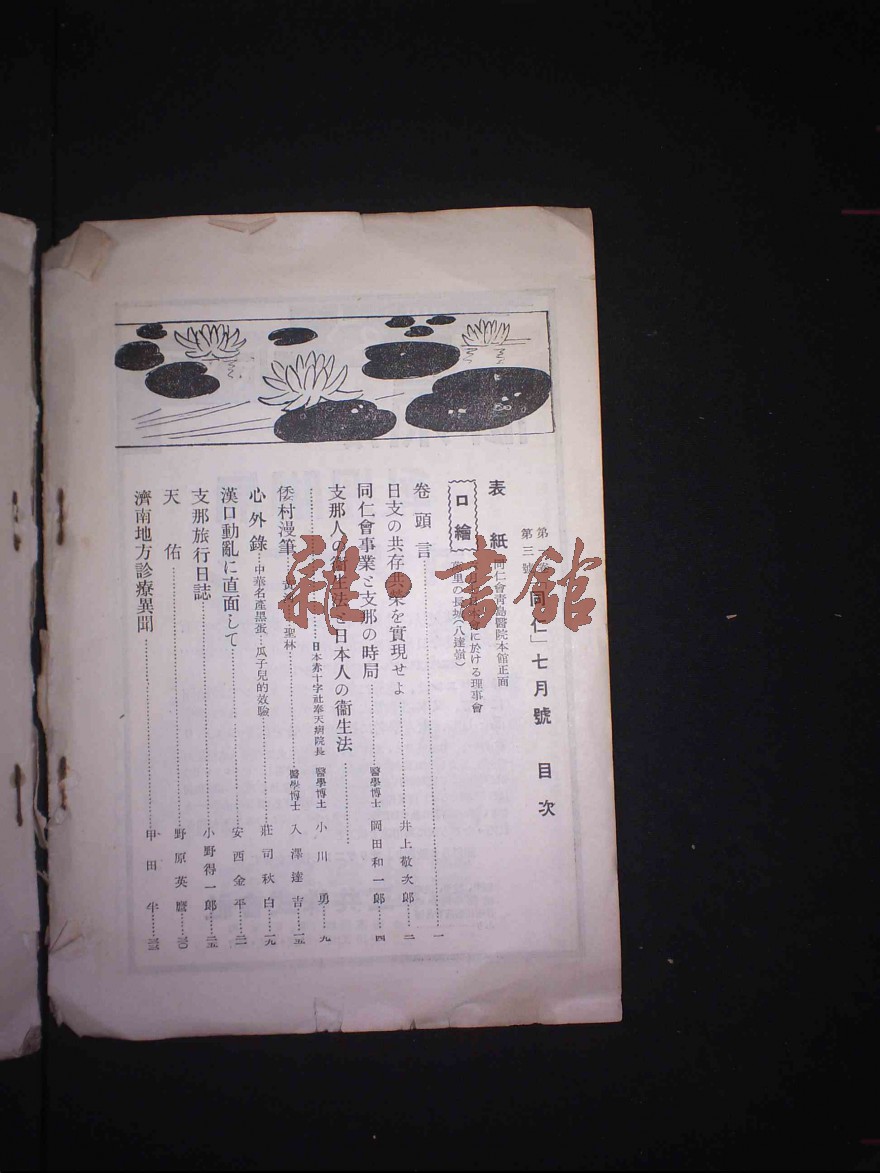 第一卷
第三號
「同仁」七月號 目次
表紙 同仁會靑島醫院本館正面
口繪
に於ける理事會
萬里の長城(八達嶺)
卷頭言 一
日支の共存共榮を實現せよ 井上敬次郎 二
同仁會事業と支那の時局 醫學博士 岡田和一郎 四
支那人の衞生法と日本人の衞生法
日本赤十字社奉天病院長 醫學博士 小川勇 九
倭村漫筆 聖林 醫學博士 入澤達吉 一五
心外錄 中華名產黑蛋、瓜子兒的效驗 莊司秋白 一九
漢口動亂に直面して 安西金平 二一
支那旅行日誌 小野得一郎 二五
天佑 野原英麿 三〇
濟南地方診療異聞 甲田牟 三三
雜·書館